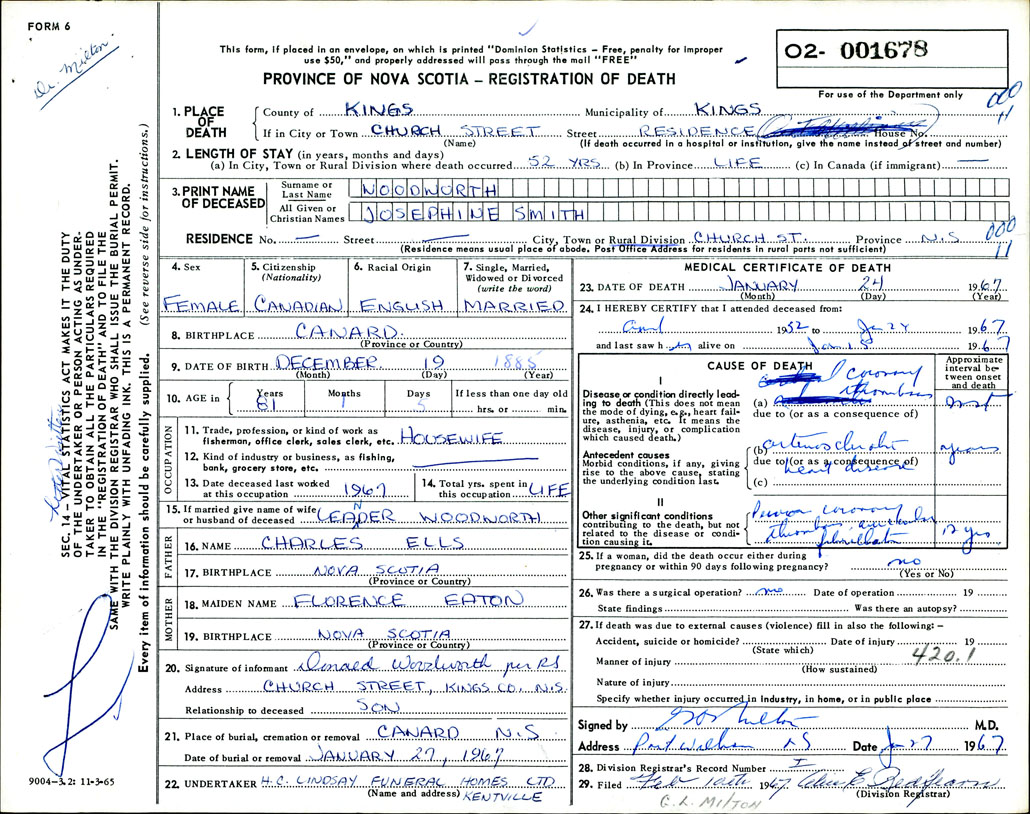 FORM 6
Dr. Milton.
This form, if placed in an envelope, on which is printed "Dominion Statistics – Free, penalty for improper
use $50," and properly addressed will pass through the mail "FREE"
PROVINCE OF NOVA SCOTIA – REGISTRATION OF DEATH
02- 001678
For use of the Department only
000
11
1. PLACE OF DEATH
County of KINGS Municipality of KINGS
If in City or Town CHURCH STREET Street RESIDENCE House No.
(Name) (If death occurred in a hospital or institution, give the name instead of street and number)
2. LENGTH OF STAY (in years, months and days)
(a) In City, Town or Rural Division where death occurred 52 YRS (b) In Province LIFE (c) In Canada (if immigrant) —
3. PRINT NAME OF DECEASED
Surname or Last Name WOODWORTH
All Given or Christian Names JOSEPHINE SMITH
RESIDENCE No. — Street — City, Town or Rural Division CHURCH ST. Province N.S
(Residence means usual place of abode. Post Office Address for residents in rural parts not sufficient)
000
11
4. Sex
FEMALE
5. Citizenship
(Nationality)
CANADIAN
6. Racial Origin
ENGLISH
7. Single, Married,
Widowed or Divorced
(write the word)
MARRIED
8. BIRTHPLACE CANARD.
(Province or Country)
9. DATE OF BIRTH DECEMBER 19 1885
(Month) (Day) (Year)
10. AGE in Years Months Days If less than one day old
81 1 5 hrs. or min.
OCCUPATION
11. Trade, profession, or kind of work as
fisherman, office clerk, sales clerk, etc. HOUSEWIFE
12. Kind of industry or business, as fishing,
bank, grocery store, etc. —
13. Date deceased last worked
at this occupation 1967
14. Total yrs. spent in
this occupation LIFE
15. If married give name of wife
or husband of deceased LEANDER WOODWORTH
FATHER
16. NAME CHARLES ELLS
17. BIRTHPLACE NOVA SCOTIA
(Province or Country)
MOTHER
18. MAIDEN NAME FLORENCE EATON
19. BIRTHPLACE NOVA SCOTIA
(Province or Country)
20. Signature of informant Donald Woodworth per RS
Address CHURCH STREET, KINGS CO., N.S.
Relationship to deceased SON
21. Place of burial, cremation or removal CANARD N.S
Date of burial or removal JANUARY 27, 1967
22. UNDERTAKER H.C. LINDSAY FUNERAL HOMES LTD
(Name and address) KENTVILLE
MEDICAL CERTIFICATE OF DEATH
23. DATE OF DEATH JANUARY 24 1967
(Month) (Day) (Year)
24. I HEREBY CERTIFY that I attended deceased from:
1952 to Jan 24 1967
and last saw her alive on 1967
CAUSE OF DEATH
Approximate interval between onset and death
I
Disease or condition directly leading to death (This does not mean the mode of dying, e.g., heart failure, asthenia, etc. It means the disease, injury, or complication which caused death.)
(a) coronary thrombosis
due to (or as a consequence of)
Antecedent causes
Morbid conditions, if any, giving rise to the above cause, stating the underlying condition last.
(b) arteriosclerotic
due to (or as a consequence of)
heart disease
years
(c)
II
Other significant conditions
contributing to the death, but not related to the disease or condition causing it.
coronary
thrombosis auricular
fibrillation
12 yrs
25. If a woman, did the death occur either during
pregnancy or within 90 days following pregnancy? no
(Yes or No)
26. Was there a surgical operation? no Date of operation 19
State findings Was there an autopsy?
27. If death was due to external causes (violence) fill in also the following: –
Accident, suicide or homicide? Date of injury 19
(State which)
420.1
Manner of injury
(How sustained)
Nature of injury
Specify whether injury occurred in Industry, in home, or in public place
Signed by Milton M.D.
Address Port Williams NS Date Jan 27 1967
28. Division Registrar's Record Number I
29. Filed Feb 10th 1967
(Division Registrar)
G.L. MILTON
9004-3.2: 11-3-65
SEC. 14 – VITAL STATISTICS ACT MAKES IT THE DUTY
OF THE UNDERTAKER OR PERSON ACTING AS UNDER-
TAKER TO OBTAIN ALL THE PARTICULARS REQUIRED
IN THE "REGISTRATION OF DEATH" AND TO FILE THE
SAME WITH THE DIVISION REGISTRAR WHO SHALL ISSUE THE BURIAL PERMIT.
WRITE PLAINLY WITH UNFADING INK. THIS IS A PERMANENT RECORD.
Every item of information should be carefully supplied. (See reverse side for instructions.)